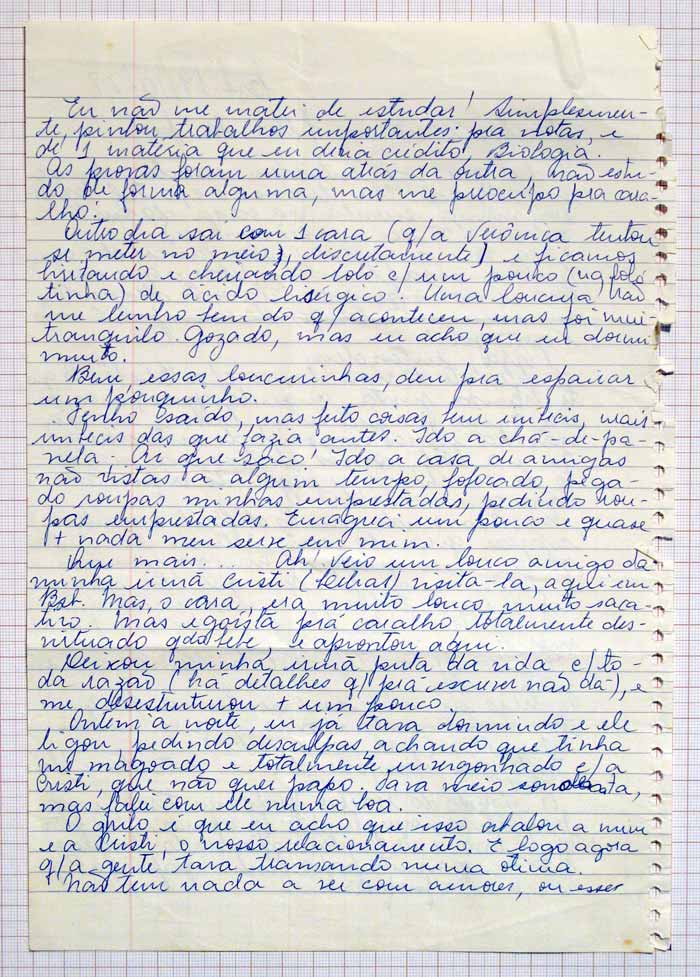 Eu não me matei de estudar! Simplesmen-
te, pintou trabalhos importantes pra notas, e
de 1 matéria que eu devia crédito, Biologia.
As provas foram uma atrás da outra, não estu-
do de forma alguma, mas me preocupo pra cara-
lho!
Outro dia saí com 1 cara (q/a Verônica tentou
se meter no meio, discretamente) e ficamos
biritando e cheirando loló c/ um pouco (uma
tinha) de ácido lisérgico. Uma loucura não
me lembro bem do q/ aconteceu, mas foi mui-
tranquilo. Gozado, mas eu acho que eu dormi
muito.
Bem, essas loucurinhas, deu pra espairar
um pouquinho.
Tenho saído, mas feito coisas bem imbecis, mais
imbecis das que fazia antes. Ido a chá-de-pa-
nela. Ai que saco! Ido a casa de amigas
não vistas a algum tempo, fofocado, pega-
do roupas minhas emprestadas, pedindo rou-
pas emprestadas. Emagreci um pouco e quase
+ nada meu serve em mim.
Que mais... Ah! Veio um louco amigo da
minha irmã Cristi visitá-la, aqui em
Bsb. Mas, o cara, era muito louco, muito saca-
tivo. Mas egoísta prá caralho, totalmente des-
virtuado qdo bebe, e aprontou aqui.
Deixou minha irmã puta da vida c/ to-
da razão (há detalhes q/ prá escrever não dá), e
me desestruturou + um pouco.
Ontem a noite, eu já tava dormindo e ele
ligou, pedindo desculpas, achando que tinha
me magoado e totalmente envergonhado c/ a
Cristi, que não quer papo. Tava meio sonolenta,
mas falei com ele numa boa.
O grilo é que eu acho que isso abalou a mim
e a Cristi, o nosso relacionamento. E logo agora
q/ a gente tava transando numa ótima.
Não tem nada a ver com amores, ou esses